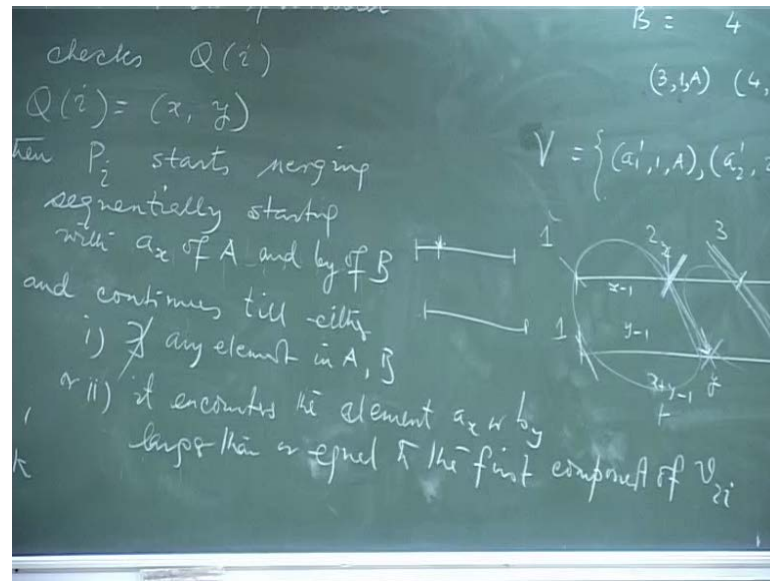 checks Q(i)
Q(i) = (x, y)
then P_i starts merging
sequentially starting
with a_x of A and b_y of B
and continues till either
i) ∄ any element in A, B
or ii) it encounters the element a_x or b_y
larger than or equal to the first component of v_2i
B = 4
(3,1,A) (4,
V = {(a'_1, 1, A), (a'_2, 2
1 2 3
x
x-1
1 y-1
x+y-1 y